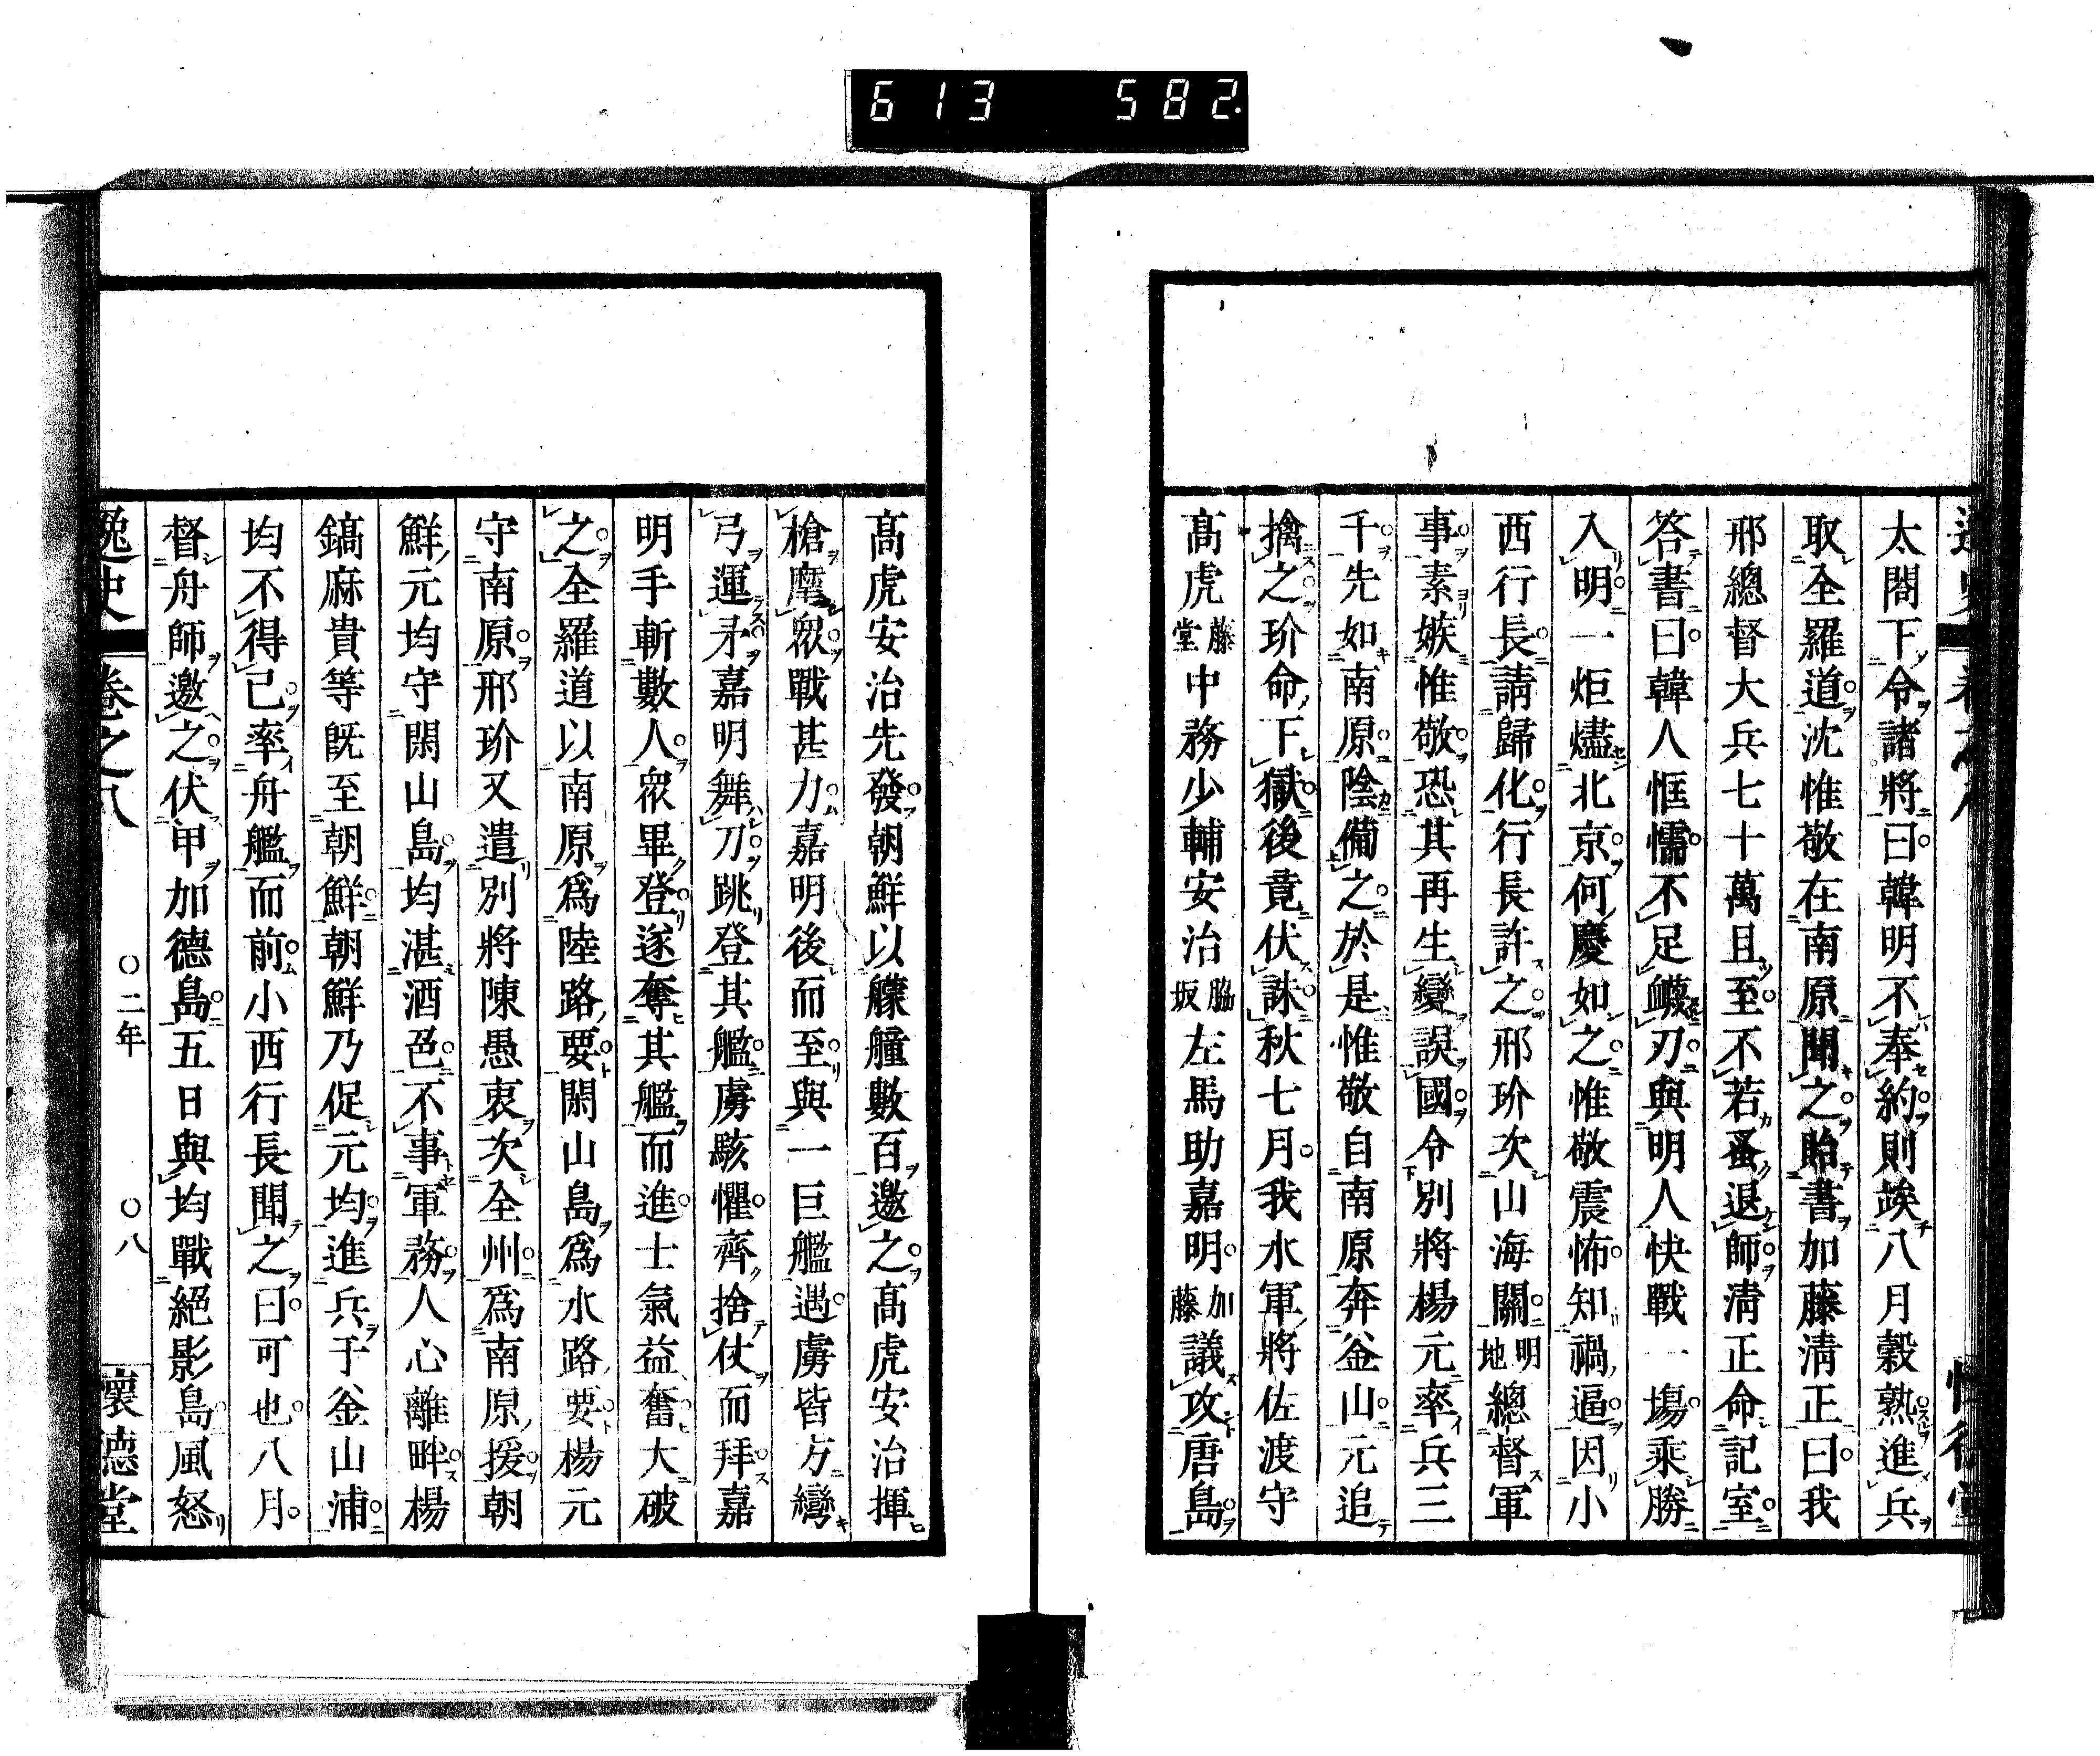 613 582.
太閤下令諸將曰韓明不奉約則竢八月穀熟進兵
取全羅道沈惟敬在南原聞之貽書加藤淸正曰我
邢總督大兵七十萬且至不若蚤退師淸正命記室
答書曰韓人恇懦不足衊刃與明人快戰一場乘勝
入明一炬燼北京何慶如之惟敬震怖知禍逼因小
西行長請歸化行長許之邢玠次山海關明地總督軍
事素嫉惟敬恐其再生變誤國令別將楊元率兵三
千先如南原陰備之於是惟敬自南原奔釜山元追
擒之玠命下獄後竟伏誅秋七月我水軍將佐渡守
高虎藤堂中務少輔安治脇坂左馬助嘉明加藤議攻唐島
高虎安治先發朝鮮以艨艟數百邀之高虎安治揮
槍麾衆戰甚力嘉明後而至與一巨艦遇虜皆方彎
弓運矛嘉明舞刀跳登其艦虜駭懼齊捨仗而拜嘉
明手斬數人衆畢登遂奪其艦而進士氣益奮大破
之全羅道以南原爲陸路要閑山島爲水路要楊元
守南原邢玠又遣別將陳愚衷次全州爲南原援朝
鮮元均守閑山島均湛酒色不事軍務人心離畔楊
鎬麻貴等旣至朝鮮朝鮮乃促元均進兵于釜山浦
均不得已率舟艦而前小西行長聞之曰可也八月
督舟師邀之伏甲加德島五日與均戰絕影島風怒
逸史 卷之八 〇二年 〇八 懷德堂